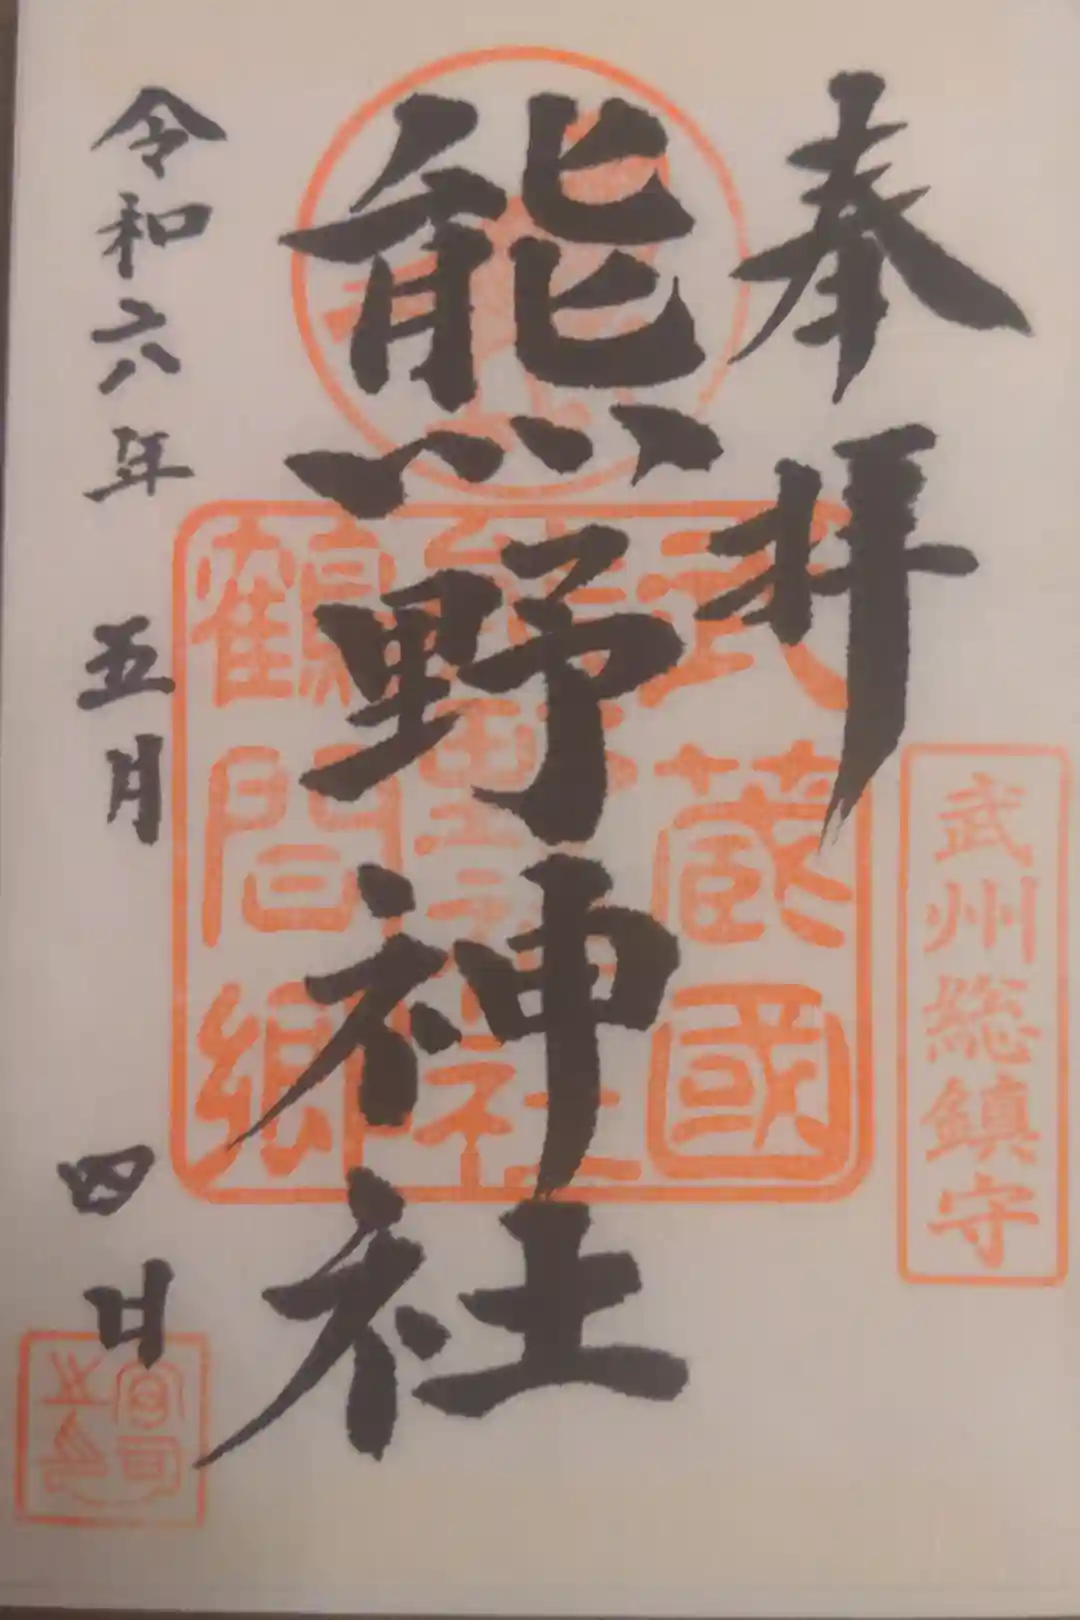 奉拝
武州総鎮守
熊野神社
武蔵國
熊野神社
鶴間郷
令和六年 五月 四日